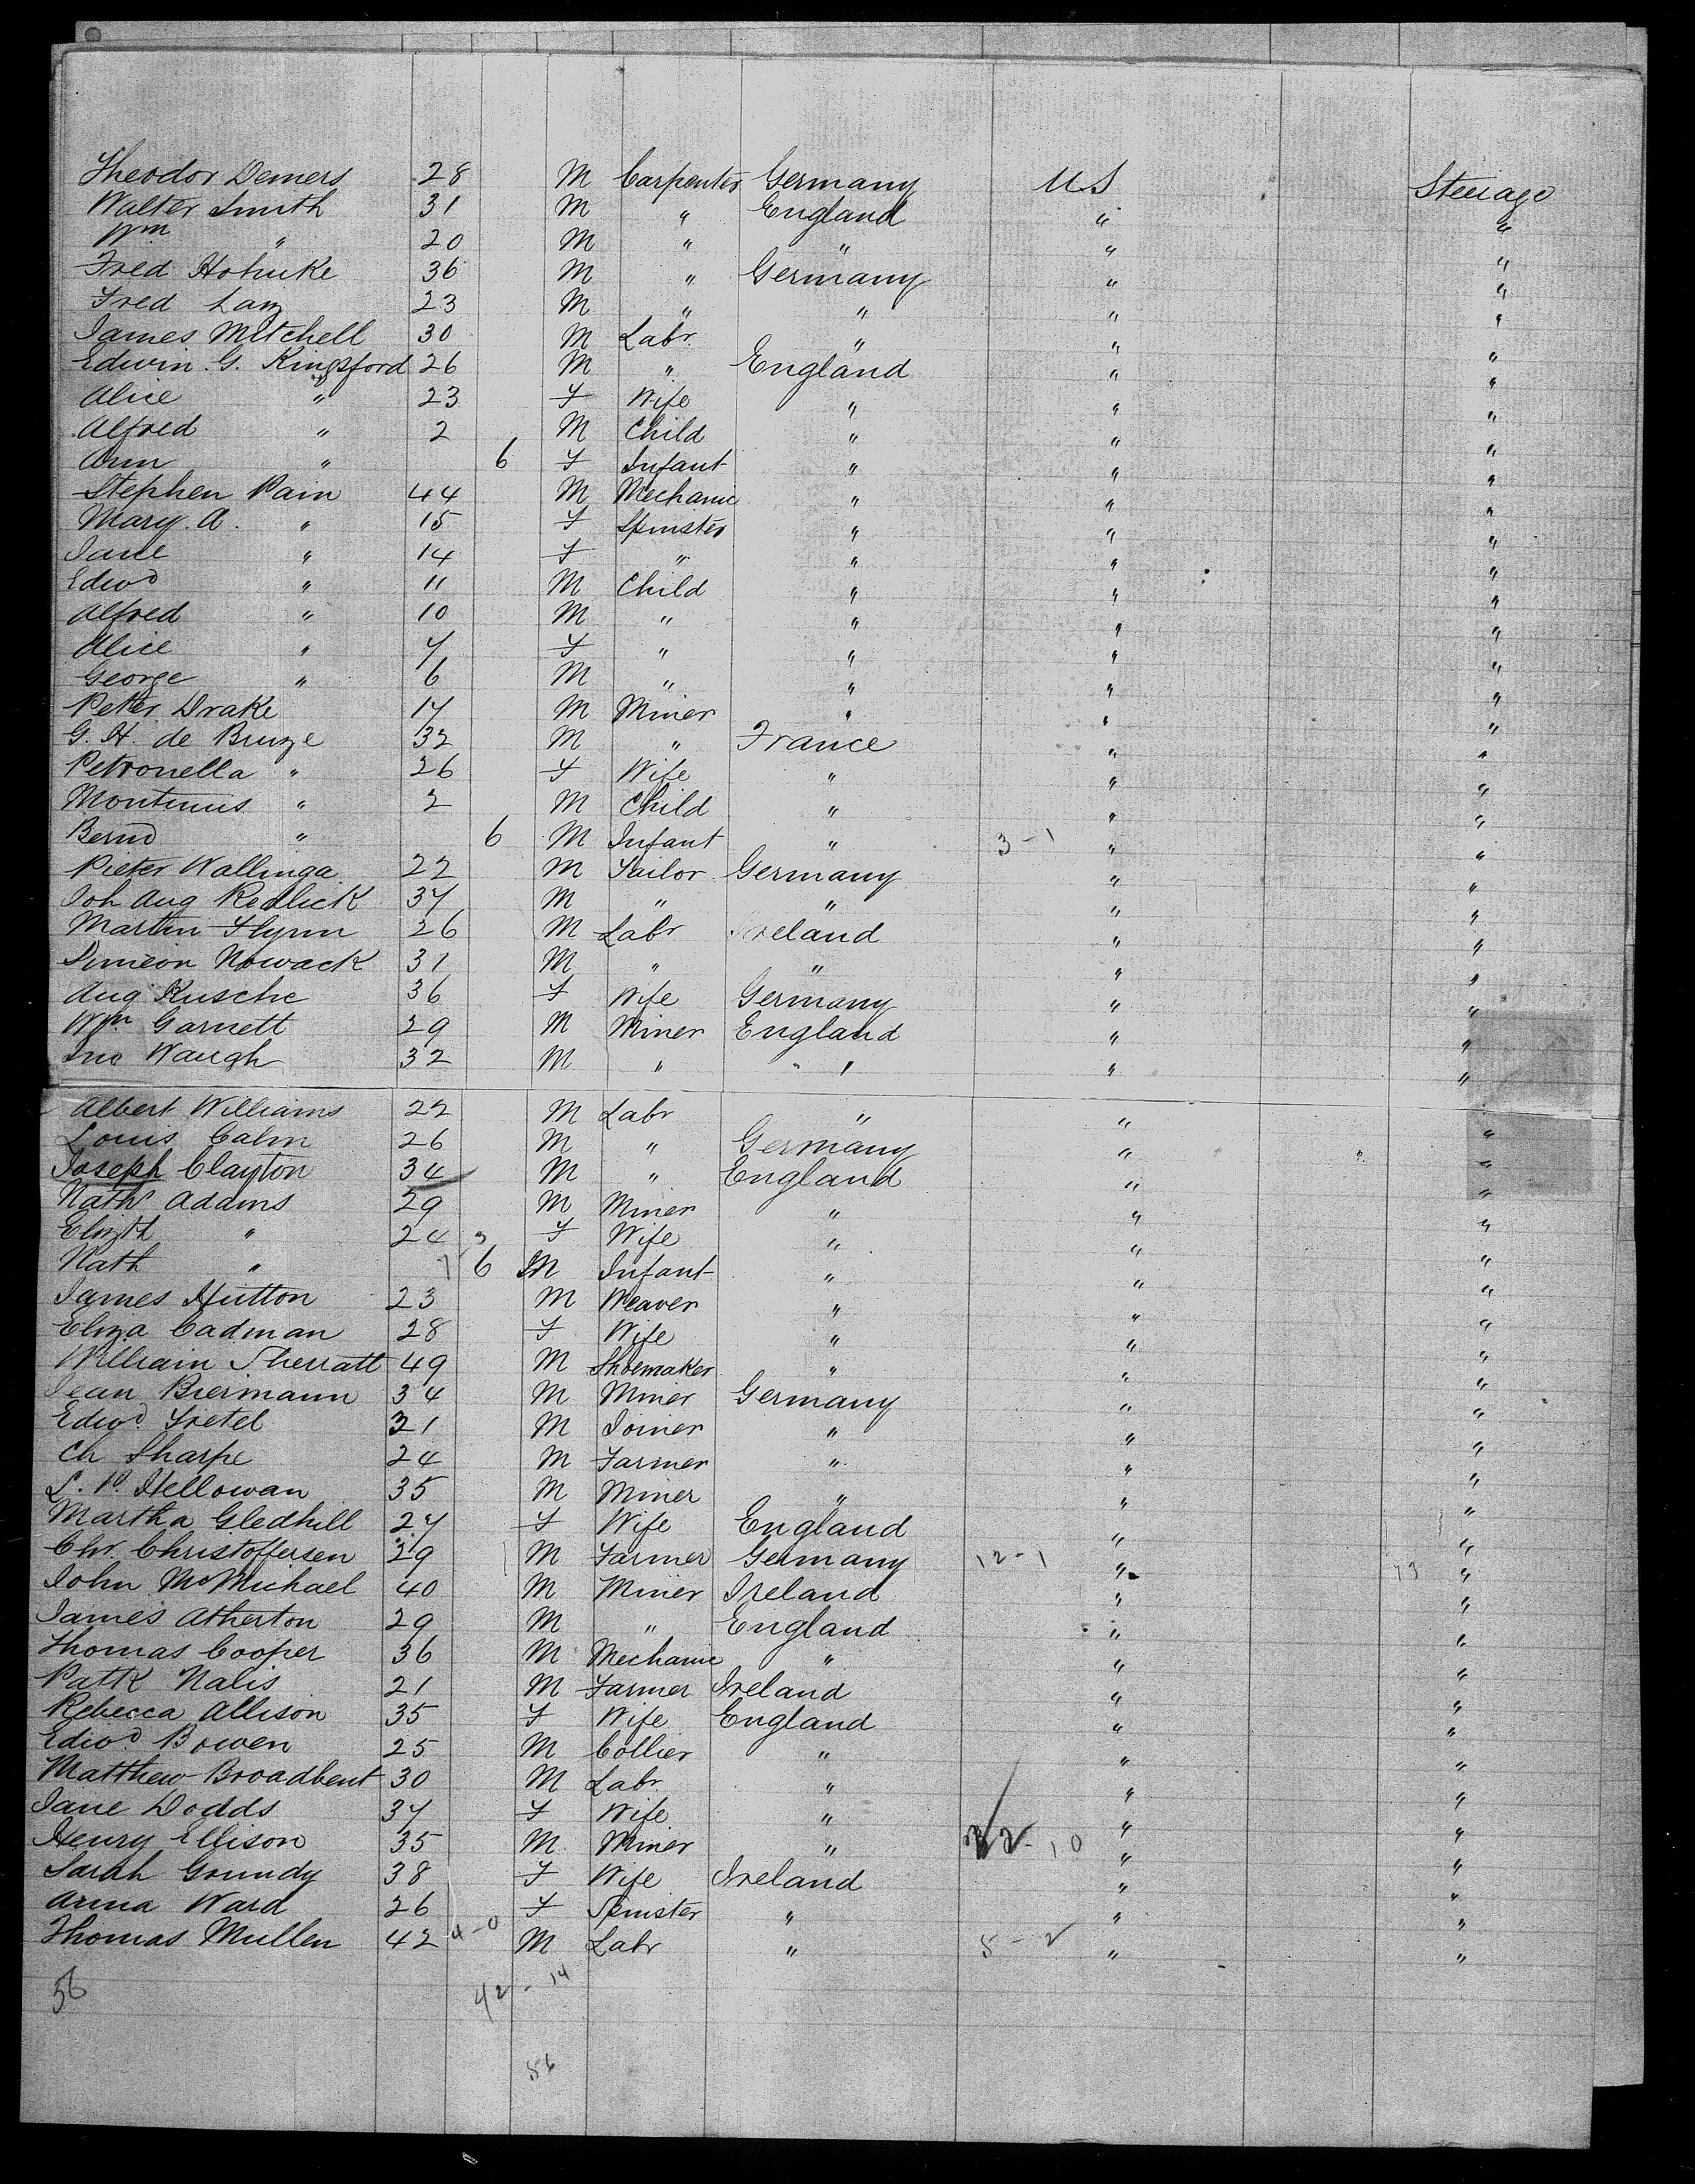 Theodor Demers 28 M Carpenter Germany US Steerage
Walter Smith 31 M " England " "
Wm " 20 M " " " "
Fred Hohnke 36 M " Germany " "
Fred Lanz 23 M " " " "
James Mitchell 30 M Labr " " "
Edwin. G. Kingsford 26 M " England " "
Alice " 23 F Wife " " "
Alfred " 2 M Child " " "
Ann " 6 F Infant " " "
Stephen Pain 44 M Mechanic " " "
Mary. A. " 15 F Spinster " " "
Jane " 14 F " " " "
Edwd " 11 M Child " " "
Alfred " 10 M " " " "
Alice " 7 F " " " "
George " 6 M " " " "
Peter Drake 17 M Miner " " "
G. H. de Bruze 32 M " France " "
Petronella " 26 F Wife " " "
Montinus " 2 M Child " " "
Bernd " 6 M Infant " 3-1 " "
Pieter Wallinga 22 M Tailor Germany " "
Joh Aug Redlick 37 M " " " "
Martin Flynn 26 M Labr Ireland " "
Simeon Nowack 31 M " " " "
Aug Kusche 36 F Wife Germany " "
Wm Garnett 29 M Miner England " "
Jno Waugh 32 M " " " "
Albert Williams 22 M Labr " " "
Louis Calm 26 M " Germany " "
Joseph Clayton 34 M " England " "
Nathl Adams 29 M Miner " " "
Elizth " 24 F Wife " " "
Nath " 6 M Infant " " "
James Hutton 23 M Weaver " " "
Eliza Cadman 28 F Wife " " "
William Sherratt 49 M Shoemaker " " "
Jean Biermann 34 M Miner Germany " "
Edwd Tretel 31 M Joiner " " "
Ch Sharpe 24 M Farmer " " "
L. P. Hellowan 35 M Miner " " "
Martha Gledhill 27 F Wife England " "
Chr. Christoffersen 29 M Farmer Germany 12-1 " "
John McMichael 40 M Miner Ireland " "
James Atherton 29 M " England " "
Thomas Cooper 36 M Mechanic " " "
Patk Nalis 21 M Farmer Ireland " "
Rebecca Allison 35 F Wife England " "
Edwd Bowen 25 M Collier " " "
Matthew Broadbent 30 M Labr " " "
Jane Dodds 37 F Wife " " "
Henry Ellison 35 M Miner " 32-10 " "
Sarah Grundy 38 F Wife Ireland " "
Anna Ward 26 F Spinster " " "
Thomas Mullen 42 4-0 M Labr " 5-2 " "
56 42-14
56